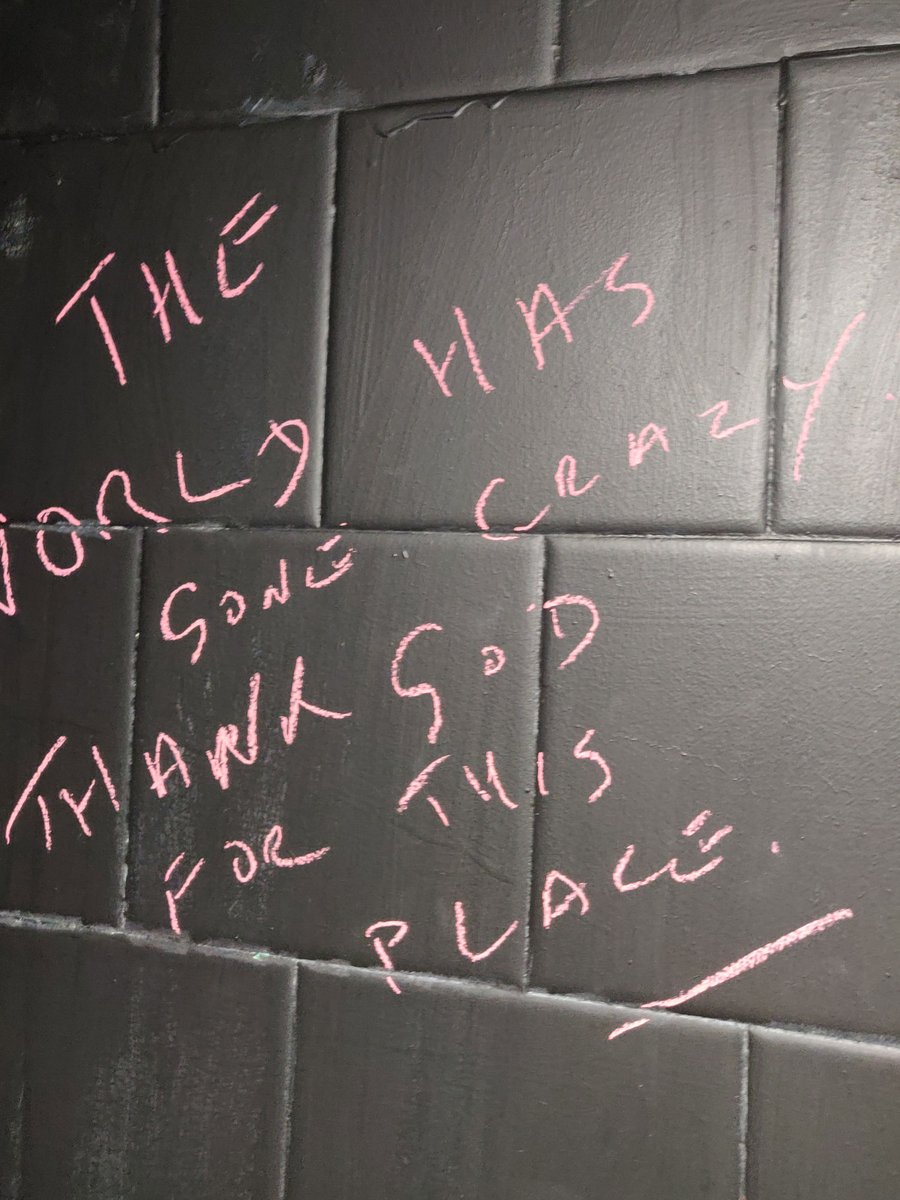 THE HAS
WORLD CRAZY.
GONE
THANK GOD
FOR THIS
PLACE.